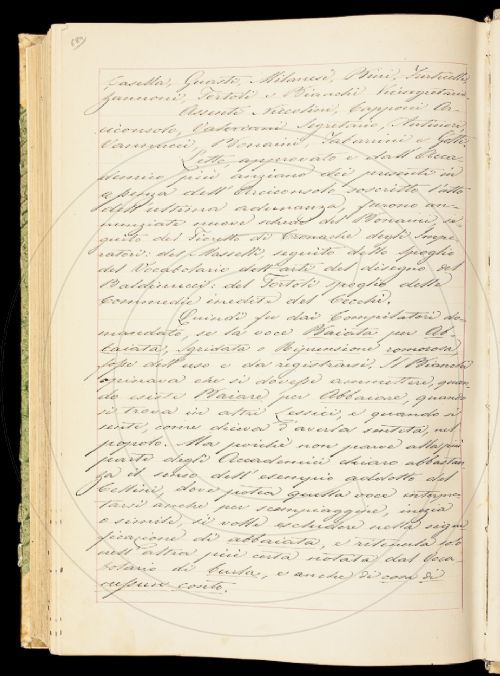 Casella, Guasti, Milanesi, Bini, Turticchi,
Zannoni, Tortoli e Bianchi Vicesegretario.
Assenti Niccolini, Capponi Ar-
ciconsolo, Segretario,
Vannucci, Bonaini, e
Letto, approvato e dall'Acca-
demico più anziano dei presenti in
dell'Arciconsolo soscritto l'atto
dell'ultima adunanza, furono an-
nunziate nuove schede del Bonaini, se-
guito del Fioretto di Cronache degli Impe-
ratori: del Masselli, seguito dello spoglio
del Vocabolario dell'arti del disegno del
Baldinucci: del Tortoli spoglio delle
Commedie inedite del Cecchi.
Quindi fu dai Compilatori do-
mandato, se la voce Baiata per Ab-
baiata, sgridata o Riprensione romorosa
fosse dell'uso e da registrarsi. Il Bianchi
opinava che si dovesse ammettere, quan-
do esiste Baiare per Abbaiare, quando
si trova in altri Lessici, e quando si
sente, come diceva d'averla sentita, nel
popolo. Ma poichè non parve alla più
parte degli Accademici chiaro abbastan-
za il senso dell'esempio addotto del
Cellini, dove potea quella voce interpre-
tarsi anche per scempiaggine, inezia
e simile, si volle escludere nella signi-
ficazione di abbaiata, e ritenerla solo
nell'altra più certa notata dal Voca-
bolario di burla, e anche di cosa di
nessun conto.